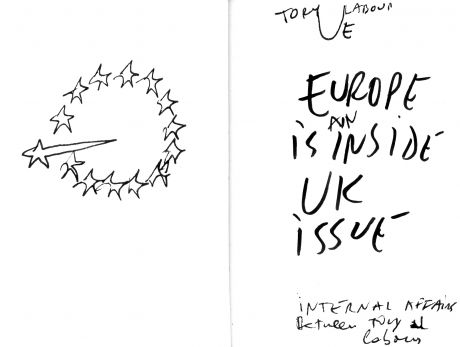 TORY LABOUR
UE
EUROPE
IS AN INSIDE
UK
ISSUE
INTERNAL AFFAIRS
Between Tory and
labour